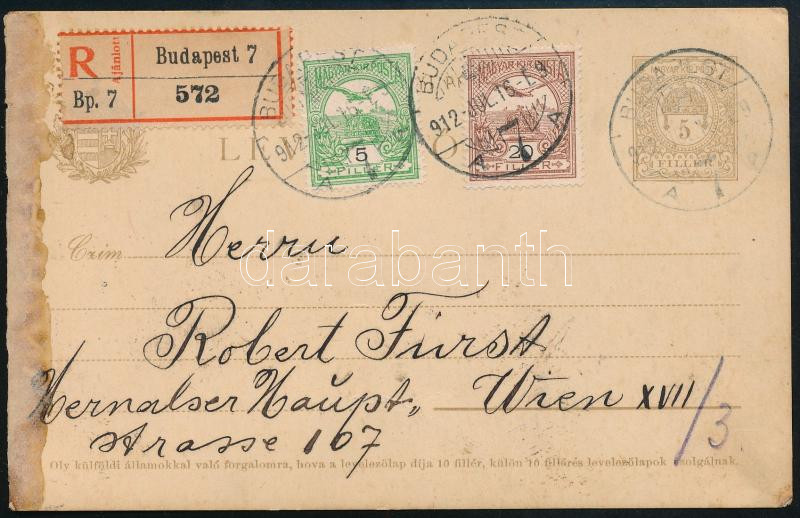 R Ajánlott Budapest 7
Bp. 7 572
MAGYAR KIR. POSTA
5
FILLÉR
MAGYAR KIR. POSTA
20
FILLÉR
BUDAPEST
912 JUL. 16
A
5
FILLÉR
Czim
Herrn
darabanth
Robert Fürst
Hernalser Haupt„ Wien XVII/3
strasse 107
Oly külföldi államokkal való forgalomra, hova a levelezőlap díja 10 fillér, külön 10 filléres levelezőlapok szolgálnak.